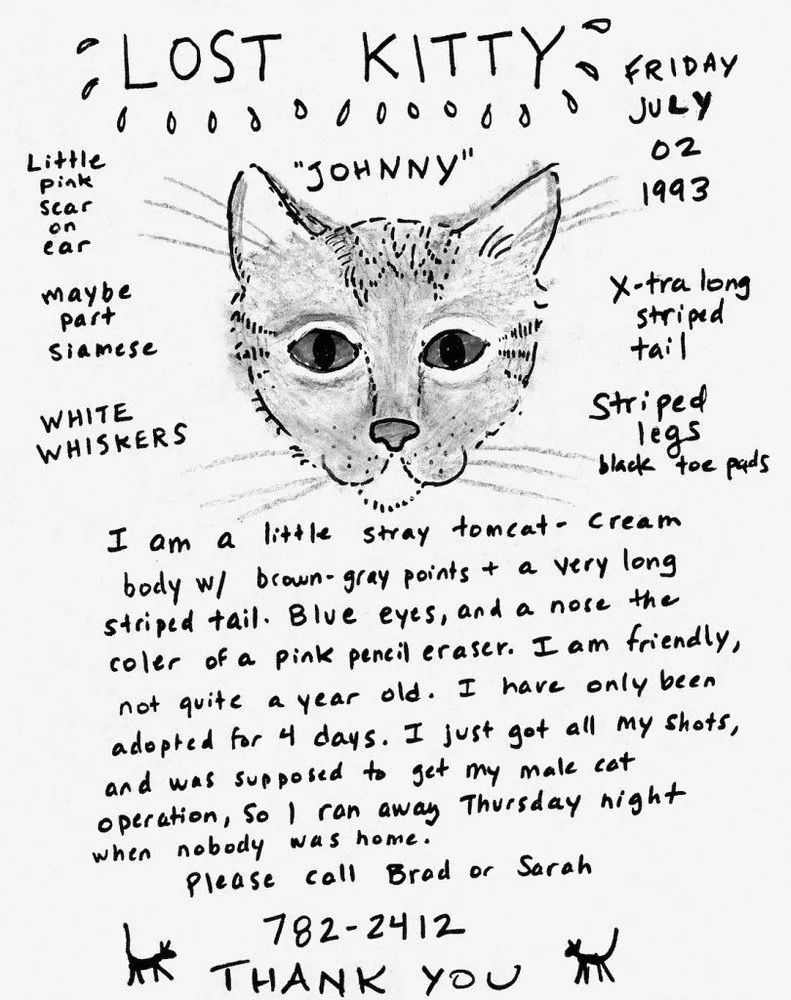 LOST KITTY
FRIDAY
JULY
02
1993
"JOHNNY"
Little
pink
scar
on
ear
maybe
part
siamese
WHITE
WHISKERS
X-tra long
striped
tail
Striped
legs
black toe pads
I am a little stray tomcat- cream
body w/ brown-gray points + a very long
striped tail. Blue eyes, and a nose the
coler of a pink pencil eraser. I am friendly,
not quite a year old. I have only been
adopted for 4 days. I just got all my shots,
and was supposed to get my male cat
operation, So I ran away Thursday night
when nobody was home.
Please call Brad or Sarah
782-2412
THANK YOU